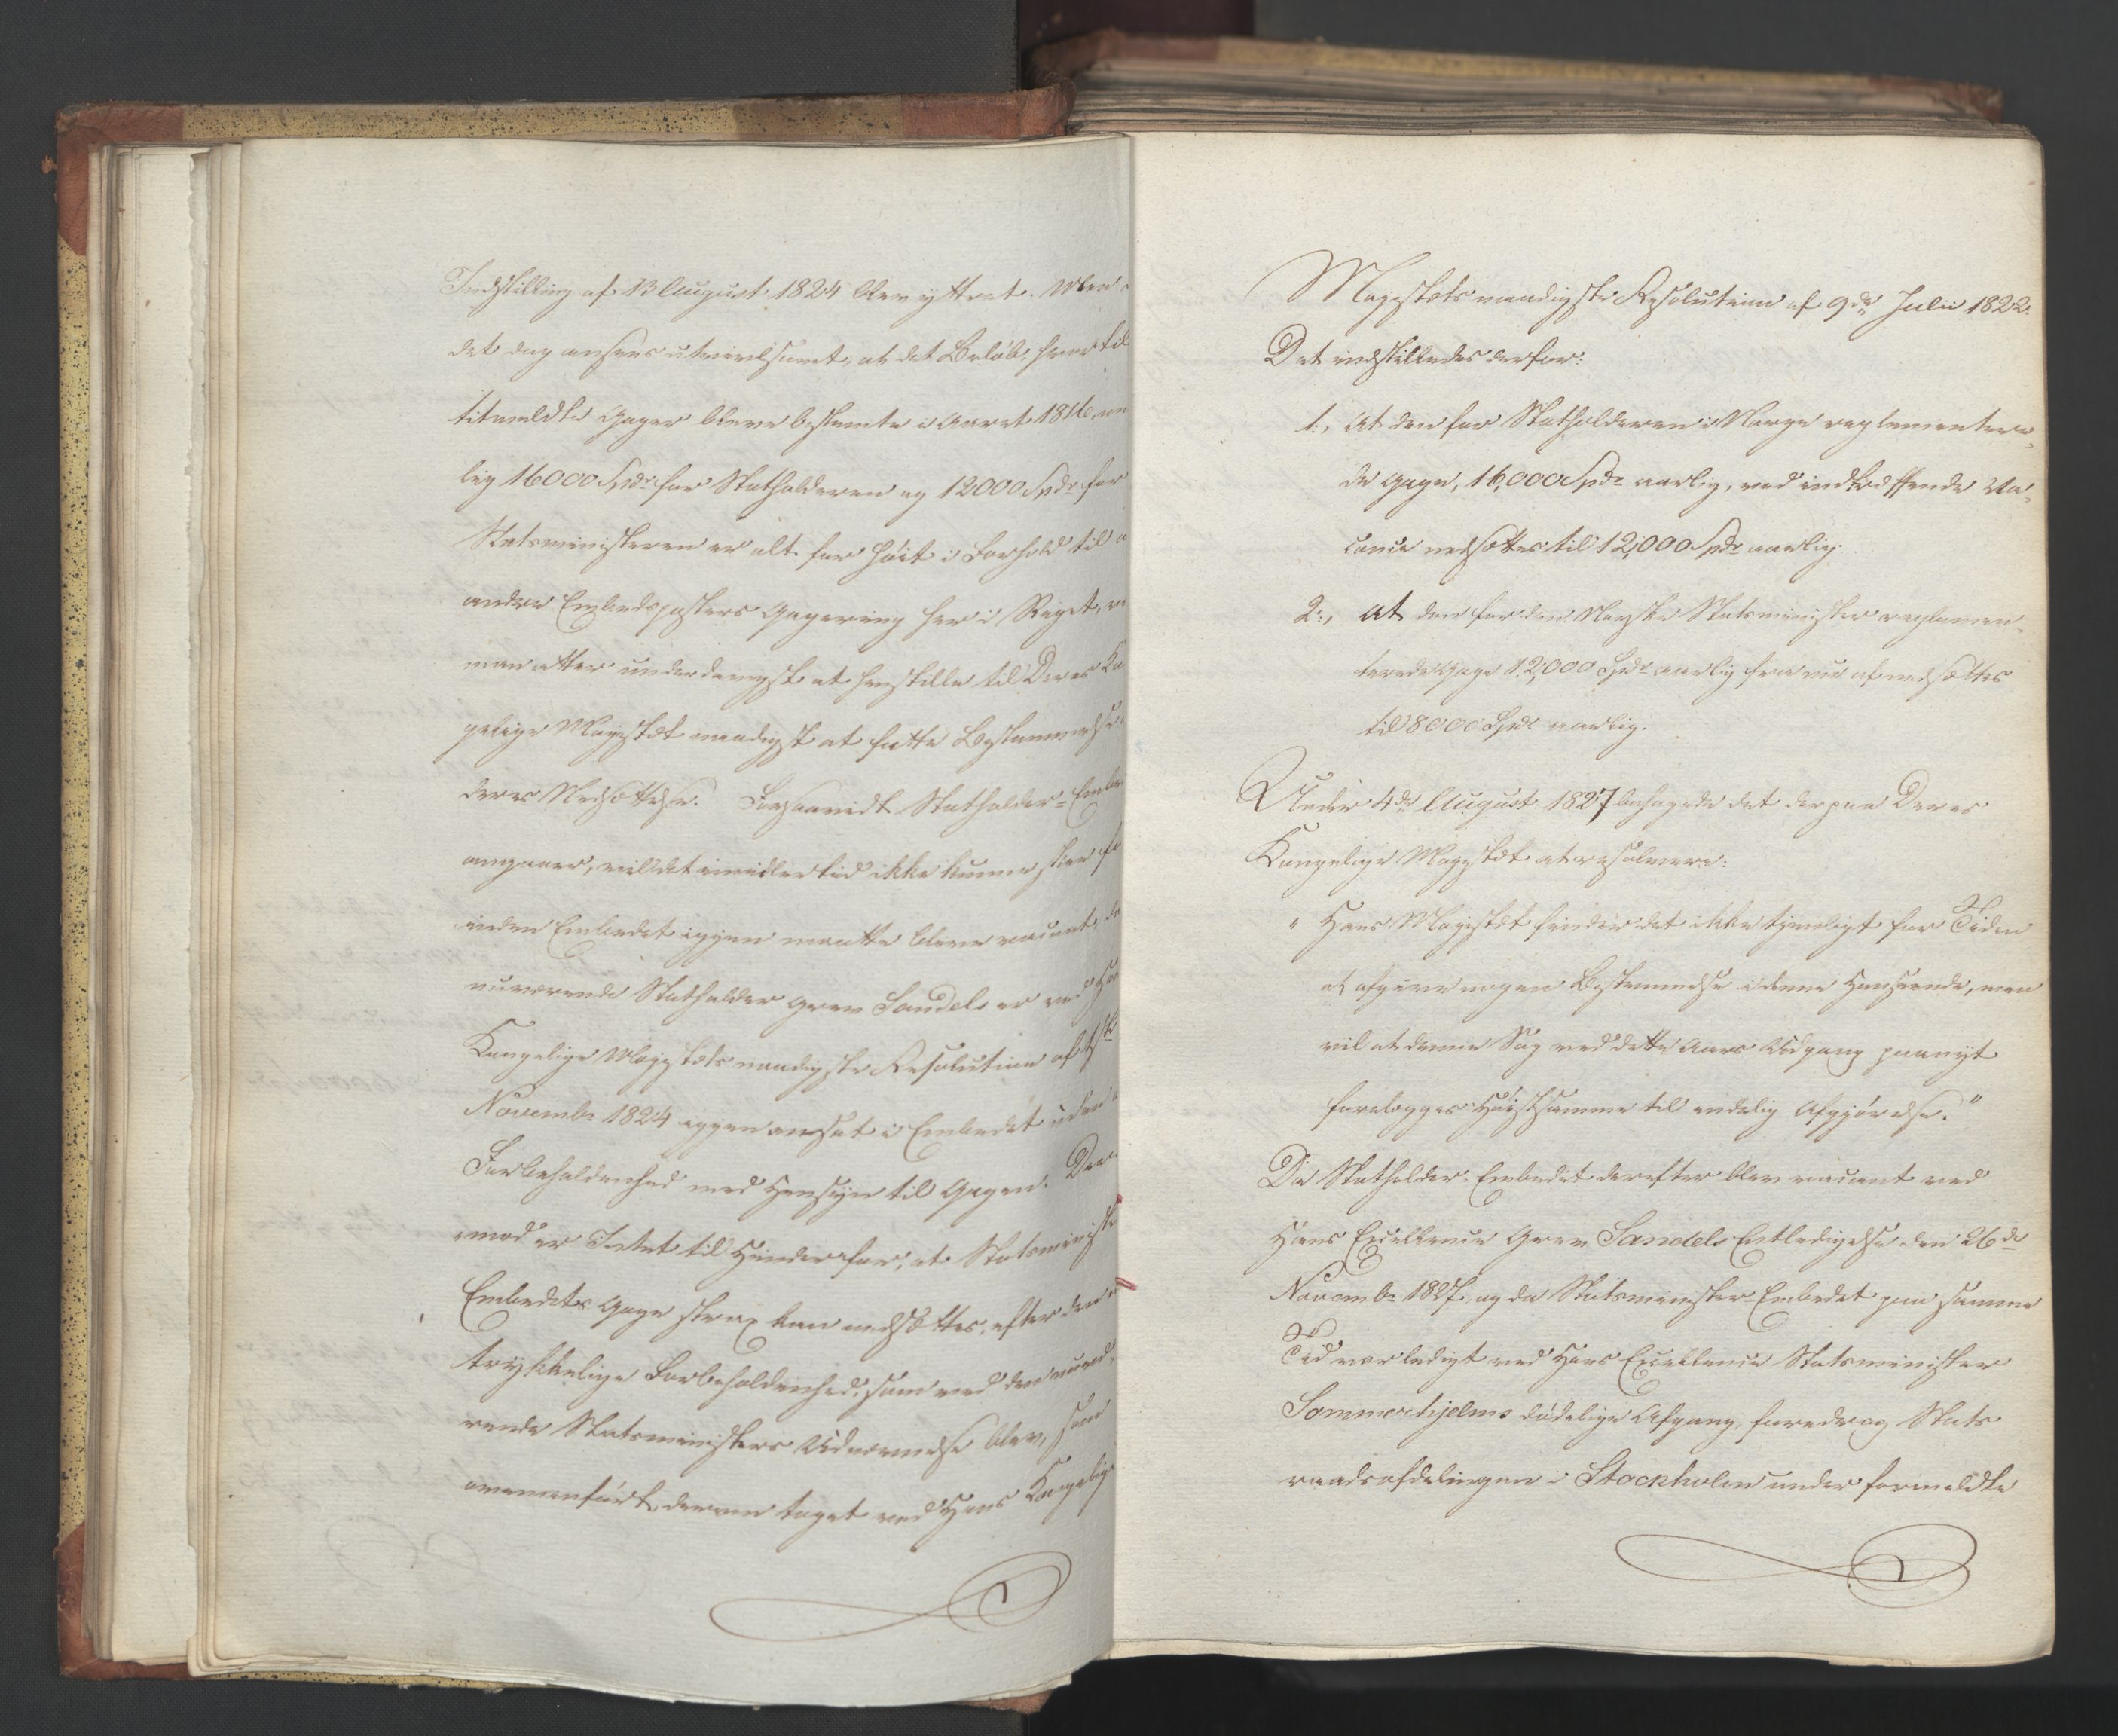 Indstilling af 13 August 1824 blev yttret. Men
det dog ansees utvivlsomt, at det Beløb, hvortil
titmeldte Gager bleve bestemte i Aaret 1816, nem
lig 16000 Spdr for Statholderen og 12000 Spdr for
Statsministeren er alt for høit i Forhold til
andre Embedsposters Gagering her i Riget,
man atter underdanigst at henstille til Deres Ko
gelige Majestæt naadigst at fatte Bestemmelse
deres Nedsættelse. Forsaavidt Statholder-Embe
angaaer, vil det imidlertid ikke kunne skee fø
inden Embedet igjen maatte blive vacant, da
nuværende Statholder Grev Sandels er ved
Kongelige Majestæts naadigste Resolution af
Novembr 1824 igjen ansat i Embedet uden
Forbeholdenhed med Hensyn til Gagen. Der
imod er Intet til Hinder for, at Statsministe
Embedets Gage strax kan nedsættes, efter den
trykkelige Forbeholdenhed, som ved den nuvæ
rende Statsministers Udnævnelse blev, som
ovenanført, derom taget ved Hans Kongelig
Majestæts naadigste Resolution af 9de Julii 1822.
Det indstilledes derfor:
1., At den for Statholderen i Norge reglementere-
de Gage, 16,000 Spdr aarlig, ved indtræffende Va-
cance nedsættes til 12,000 Spdr aarlig.
2., At den for den Norske Statsminister reglemen-
terede Gage 12,000 Spdr aarlig fra nu af nedsættes
til 8000 Spdr aarlig.
Under 4de August 1827 behagede det derpaa Deres
Kongelige Majestæt at resolvere:
"Hans Majestæt finder det ikke tjenligt for Tiden
at afgive nogen Bestemmelse i denne Henseende, men
vil at denne Sag ved dette Aars Udgang paanyt
forelægges Høistsamme til endelig Afgjørelse."
Da Statholder-Embedet derefter blev vacant ved
Hans Excellence Grev Sandels Entledigelse den 26de
Novembr 1827, og da Statsminister Embedet paa samme
Tid var ledigt ved Hans Excellence Statsminister
Sommerhjelms dødelige Afgang, foredrog Stats-
raadsafdelingen i Stockholm under formeldte